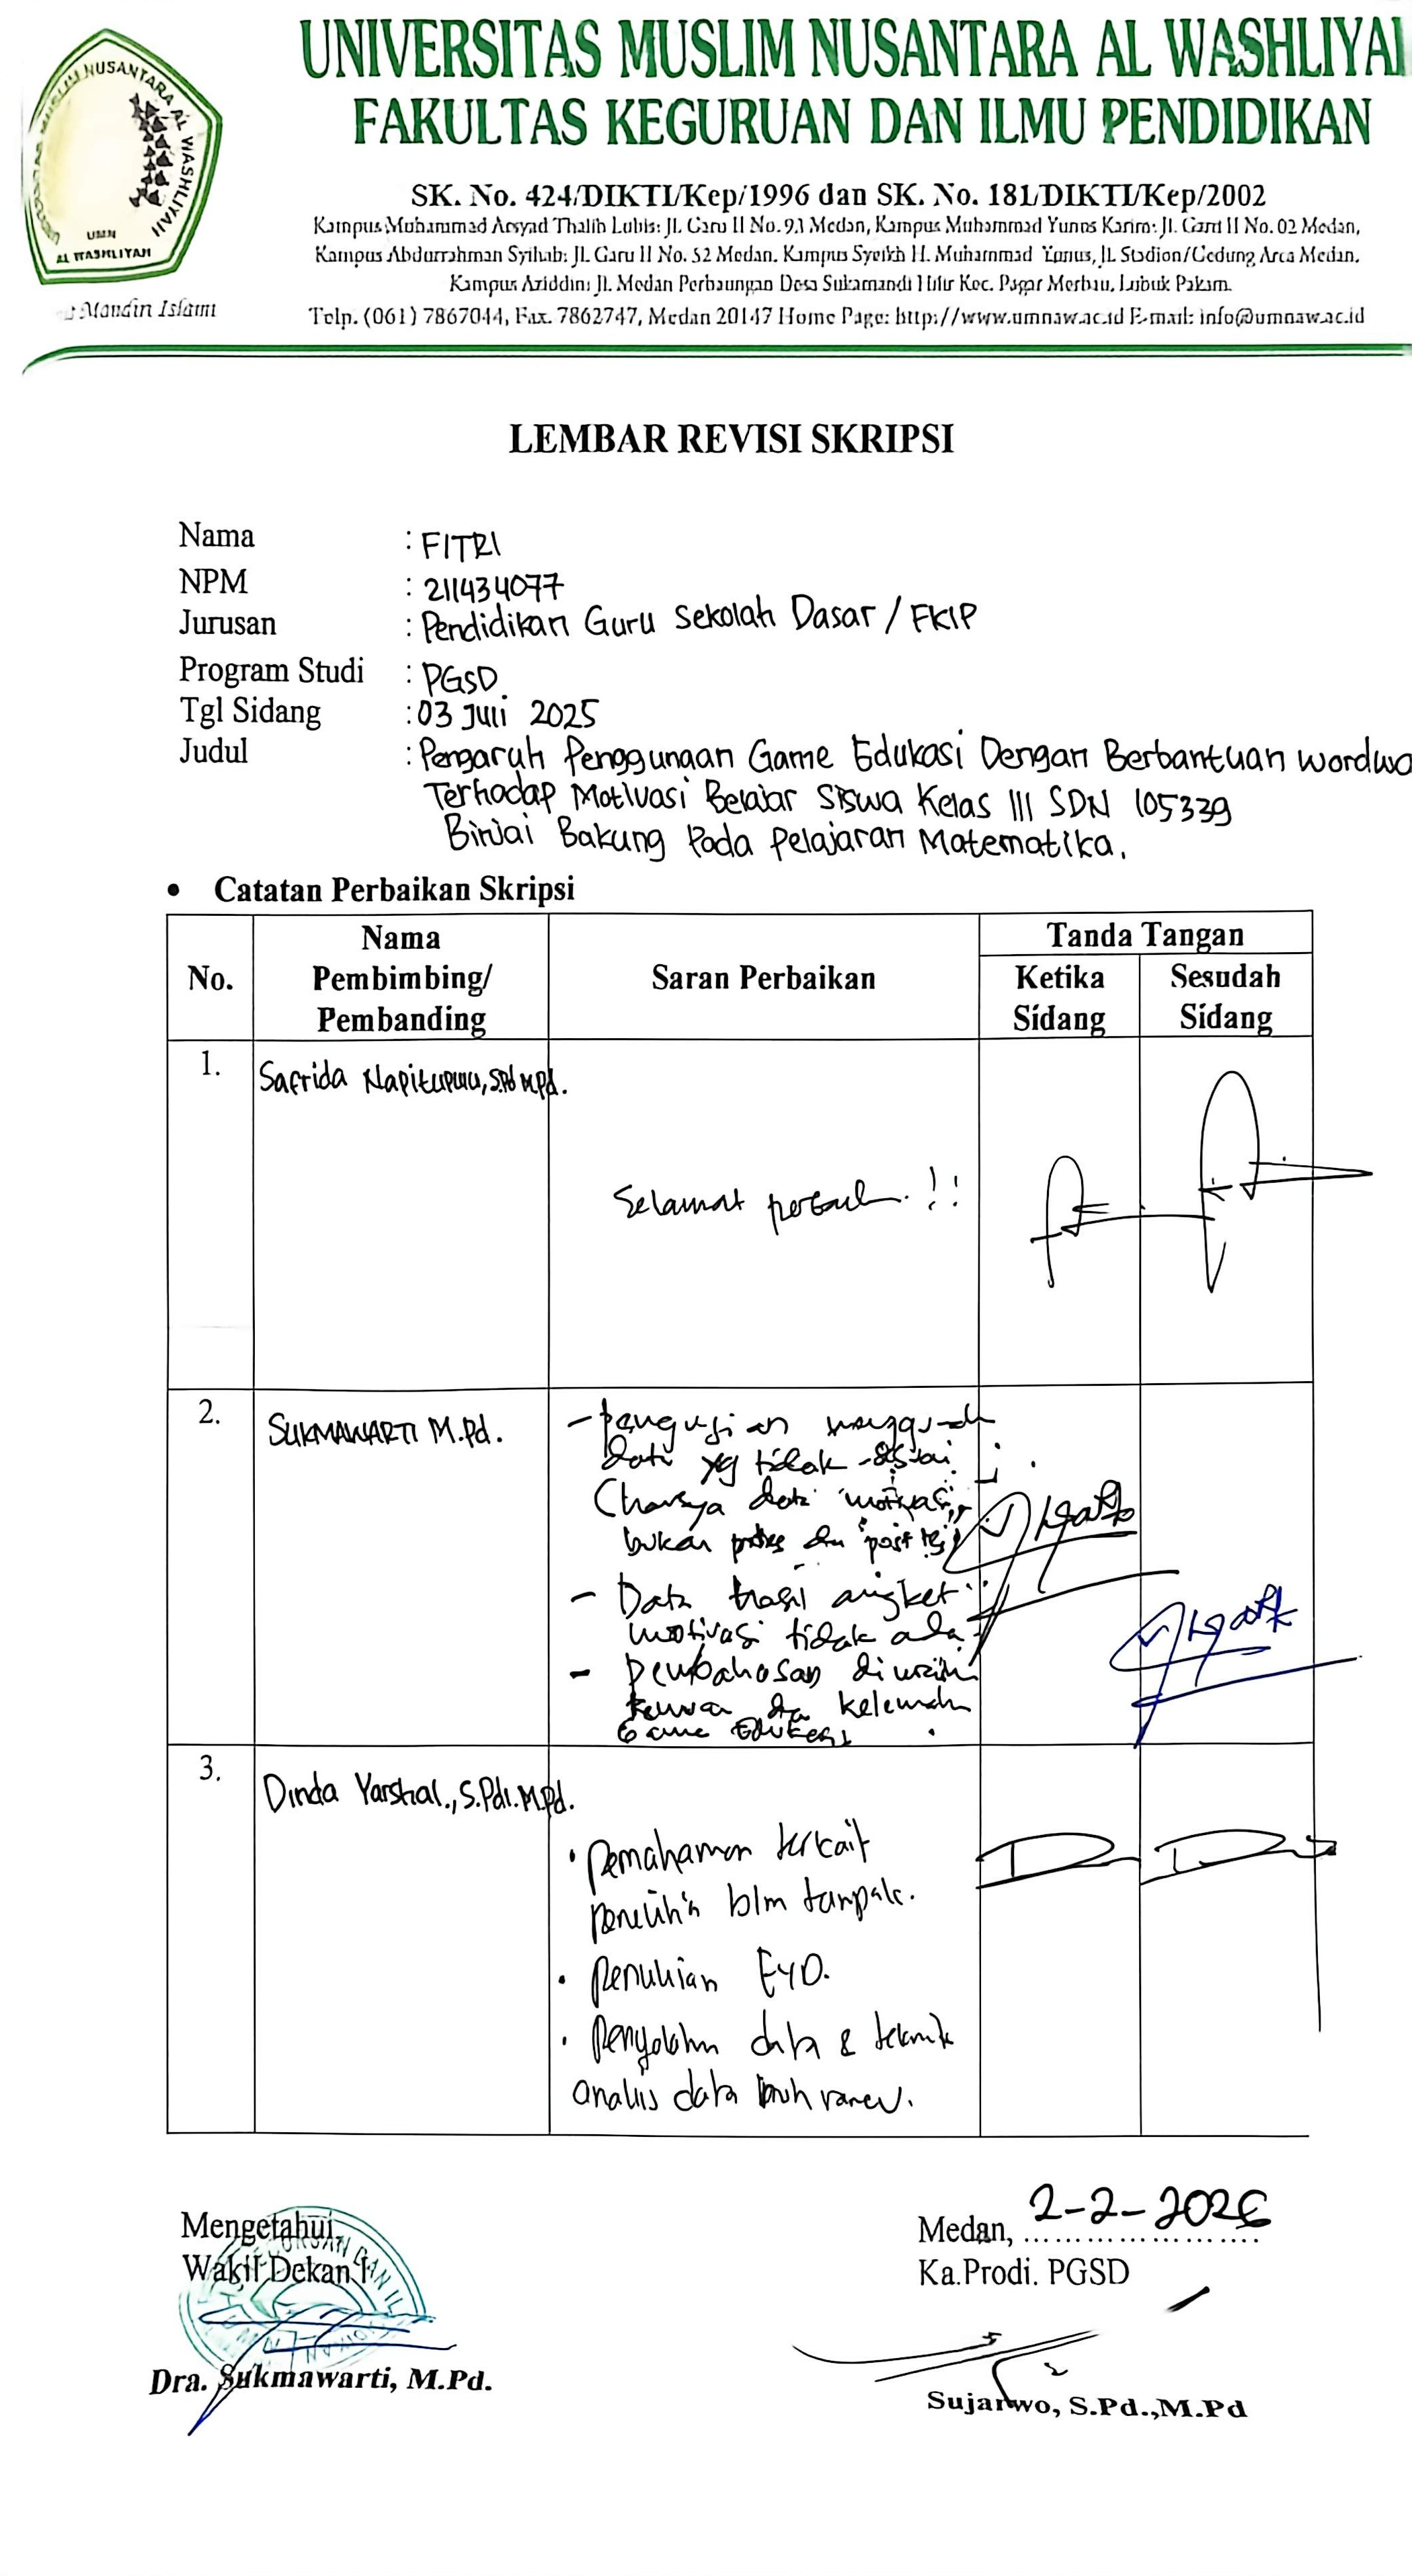 UNIVERSITAS MUSLIM NUSANTARA AL WASHLIYAH
FAKULTAS KEGURUAN DAN ILMU PENDIDIKAN
SK. No. 424/DIKTI/Kep/1996 dan SK. No. 181/DIKTI/Kep/2002
Kampus Muhammad Arsyad Thalib Lubis: Jl. Garu II No. 93 Medan, Kampus Muhammad Yunus Karim: Jl. Garu II No. 02 Medan,
Kampus Abdurrahman Syihab: Jl. Garu II No. 52 Medan. Kampus Syeikh H. Muhammad Yunus, Jl. Stadion/Gedung Arca Medan.
Kampus Aziddin: Jl. Medan Perbaungan Desa Sukamandi Hilir Kec. Pagar Merbau, Lubuk Pakam.
Telp. (061) 7867044, Fax. 7862747, Medan 20147 Home Page: http://www.umnaw.ac.id E-mail: info@umnaw.ac.id
MUSLIM NUSANTARA AL WASHLIYAH
UMN
AL WASHLIYAH
Mandiri Islami
LEMBAR REVISI SKRIPSI
Nama : FITRI
NPM : 211434077
Jurusan : Pendidikan Guru Sekolah Dasar / FKIP
Program Studi : PGSD
Tgl Sidang : 03 Juli 2025
Judul : Pengaruh Penggunaan Game Edukasi Dengan Berbantuan wordwa
Terhadap Motivasi Belajar Siswa Kelas III SDN 105339
Binjai Bakung Pada Pelajaran Matematika.
• Catatan Perbaikan Skripsi
No. Nama Pembimbing/ Pembanding Saran Perbaikan Tanda Tangan
Ketika Sidang Sesudah Sidang
1. Safrida Napitupulu, S.Pd M.Pd.
Selamat !!
2. SUKMAWARTI M.Pd.
- Pengujian
data yg tidak sesuai
(harusnya data motivasi,
bukan pretes dan post tes)
- Data hasil angket
motivasi tidak ada
- Pembahasan
kelemahan
Game Edukasi
3. Dinda Yarshal., S.Pdi.M.Pd.
• Pemahaman terkait
penelitian blm tampak.
• Penulisan EYD.
• Pengolahan data & teknik
analisis data
Mengetahui,
Wakil Dekan I
Dra. Sukmawarti, M.Pd.
Medan, 2-2-2026
Ka.Prodi. PGSD
Sujarwo, S.Pd.,M.Pd